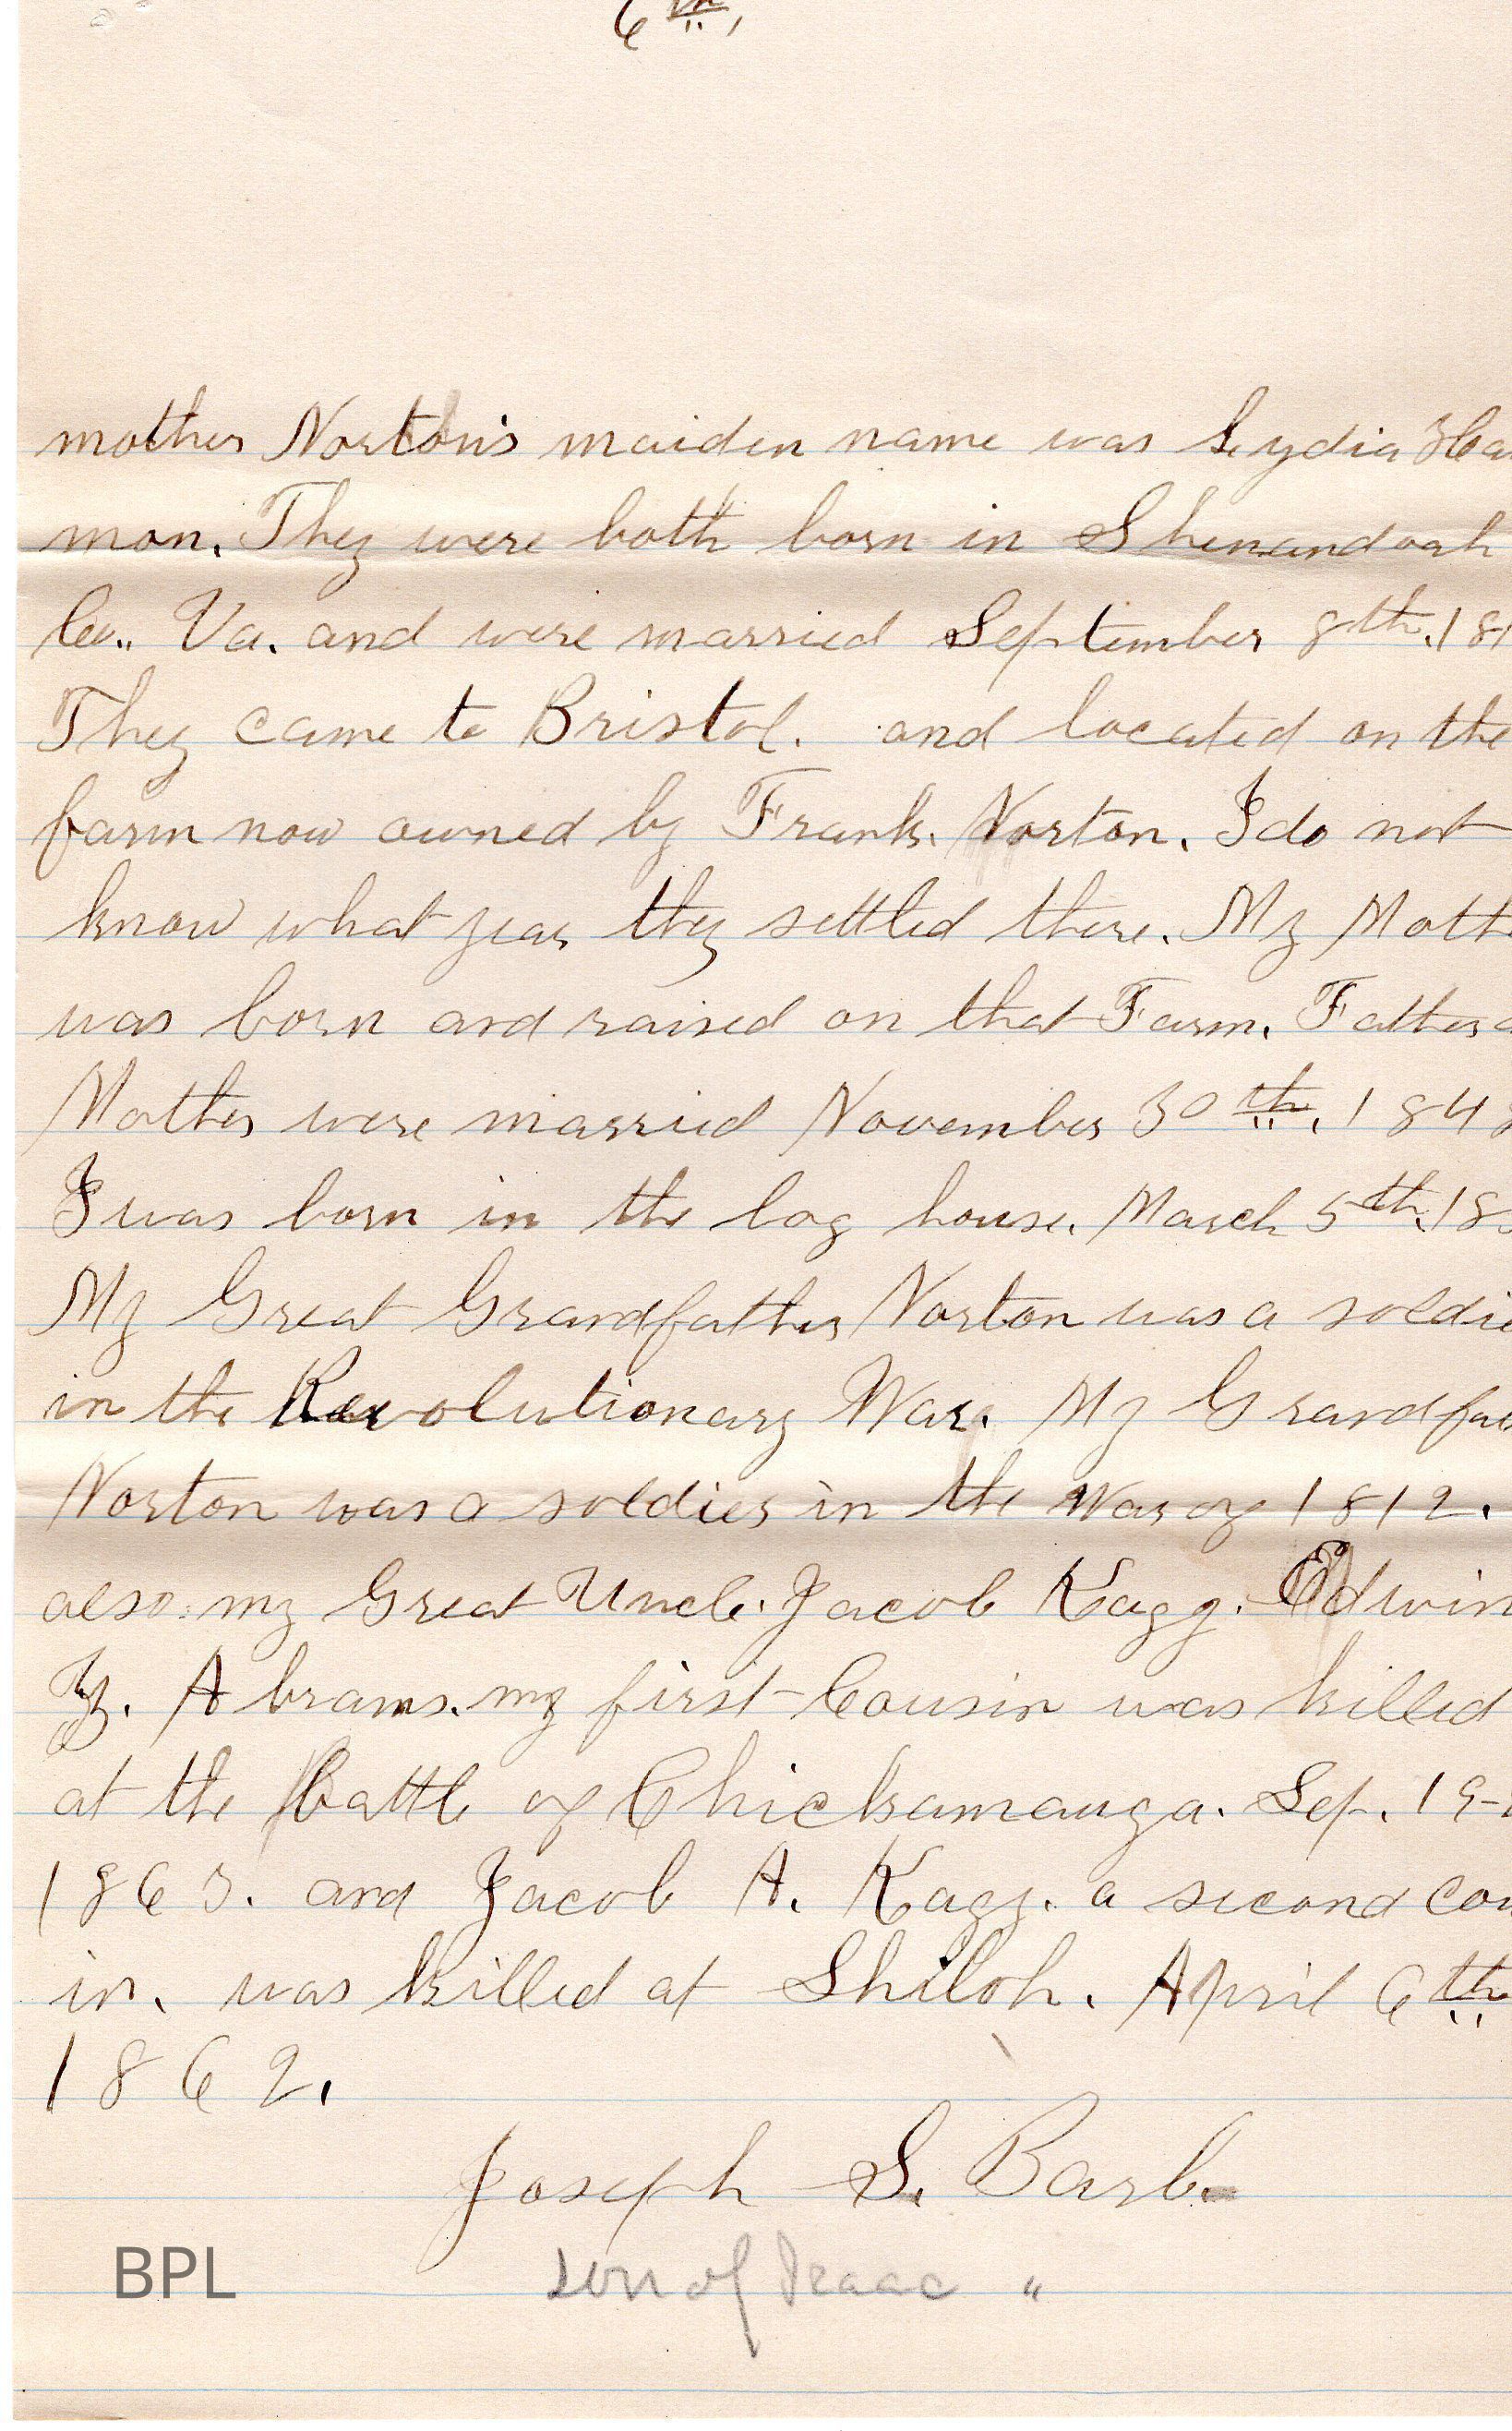 6th,
mother Norton's maiden name was Lydia Ha
mon. They were both born in Shenandoah
Co.. Va. and were married September 8th. 181
They came to Bristol. and located on the
farm now owned by Frank. Norton. I do not
know what year they settled there. My Moth
was born and raised on that Farm. Father a
Mother were married November 30th, 1848
I was born in the log house. March 5th. 185
My Great Grandfather Norton was a soldie
in the Revolutionary War. My Grandfat
Norton was a soldier in the War of 1812.
also. my Great Uncle. Jacob Kagy. Edwin
Z. Abrams. my first Cousin was killed
at the Battle of Chickamauga. Sep. 19-
1863. and Jacob A. Kagy. a second cou
in. was killed at Shiloh. April 6th
1862.
Joseph S. Barb.
son of Isaac "
BPL